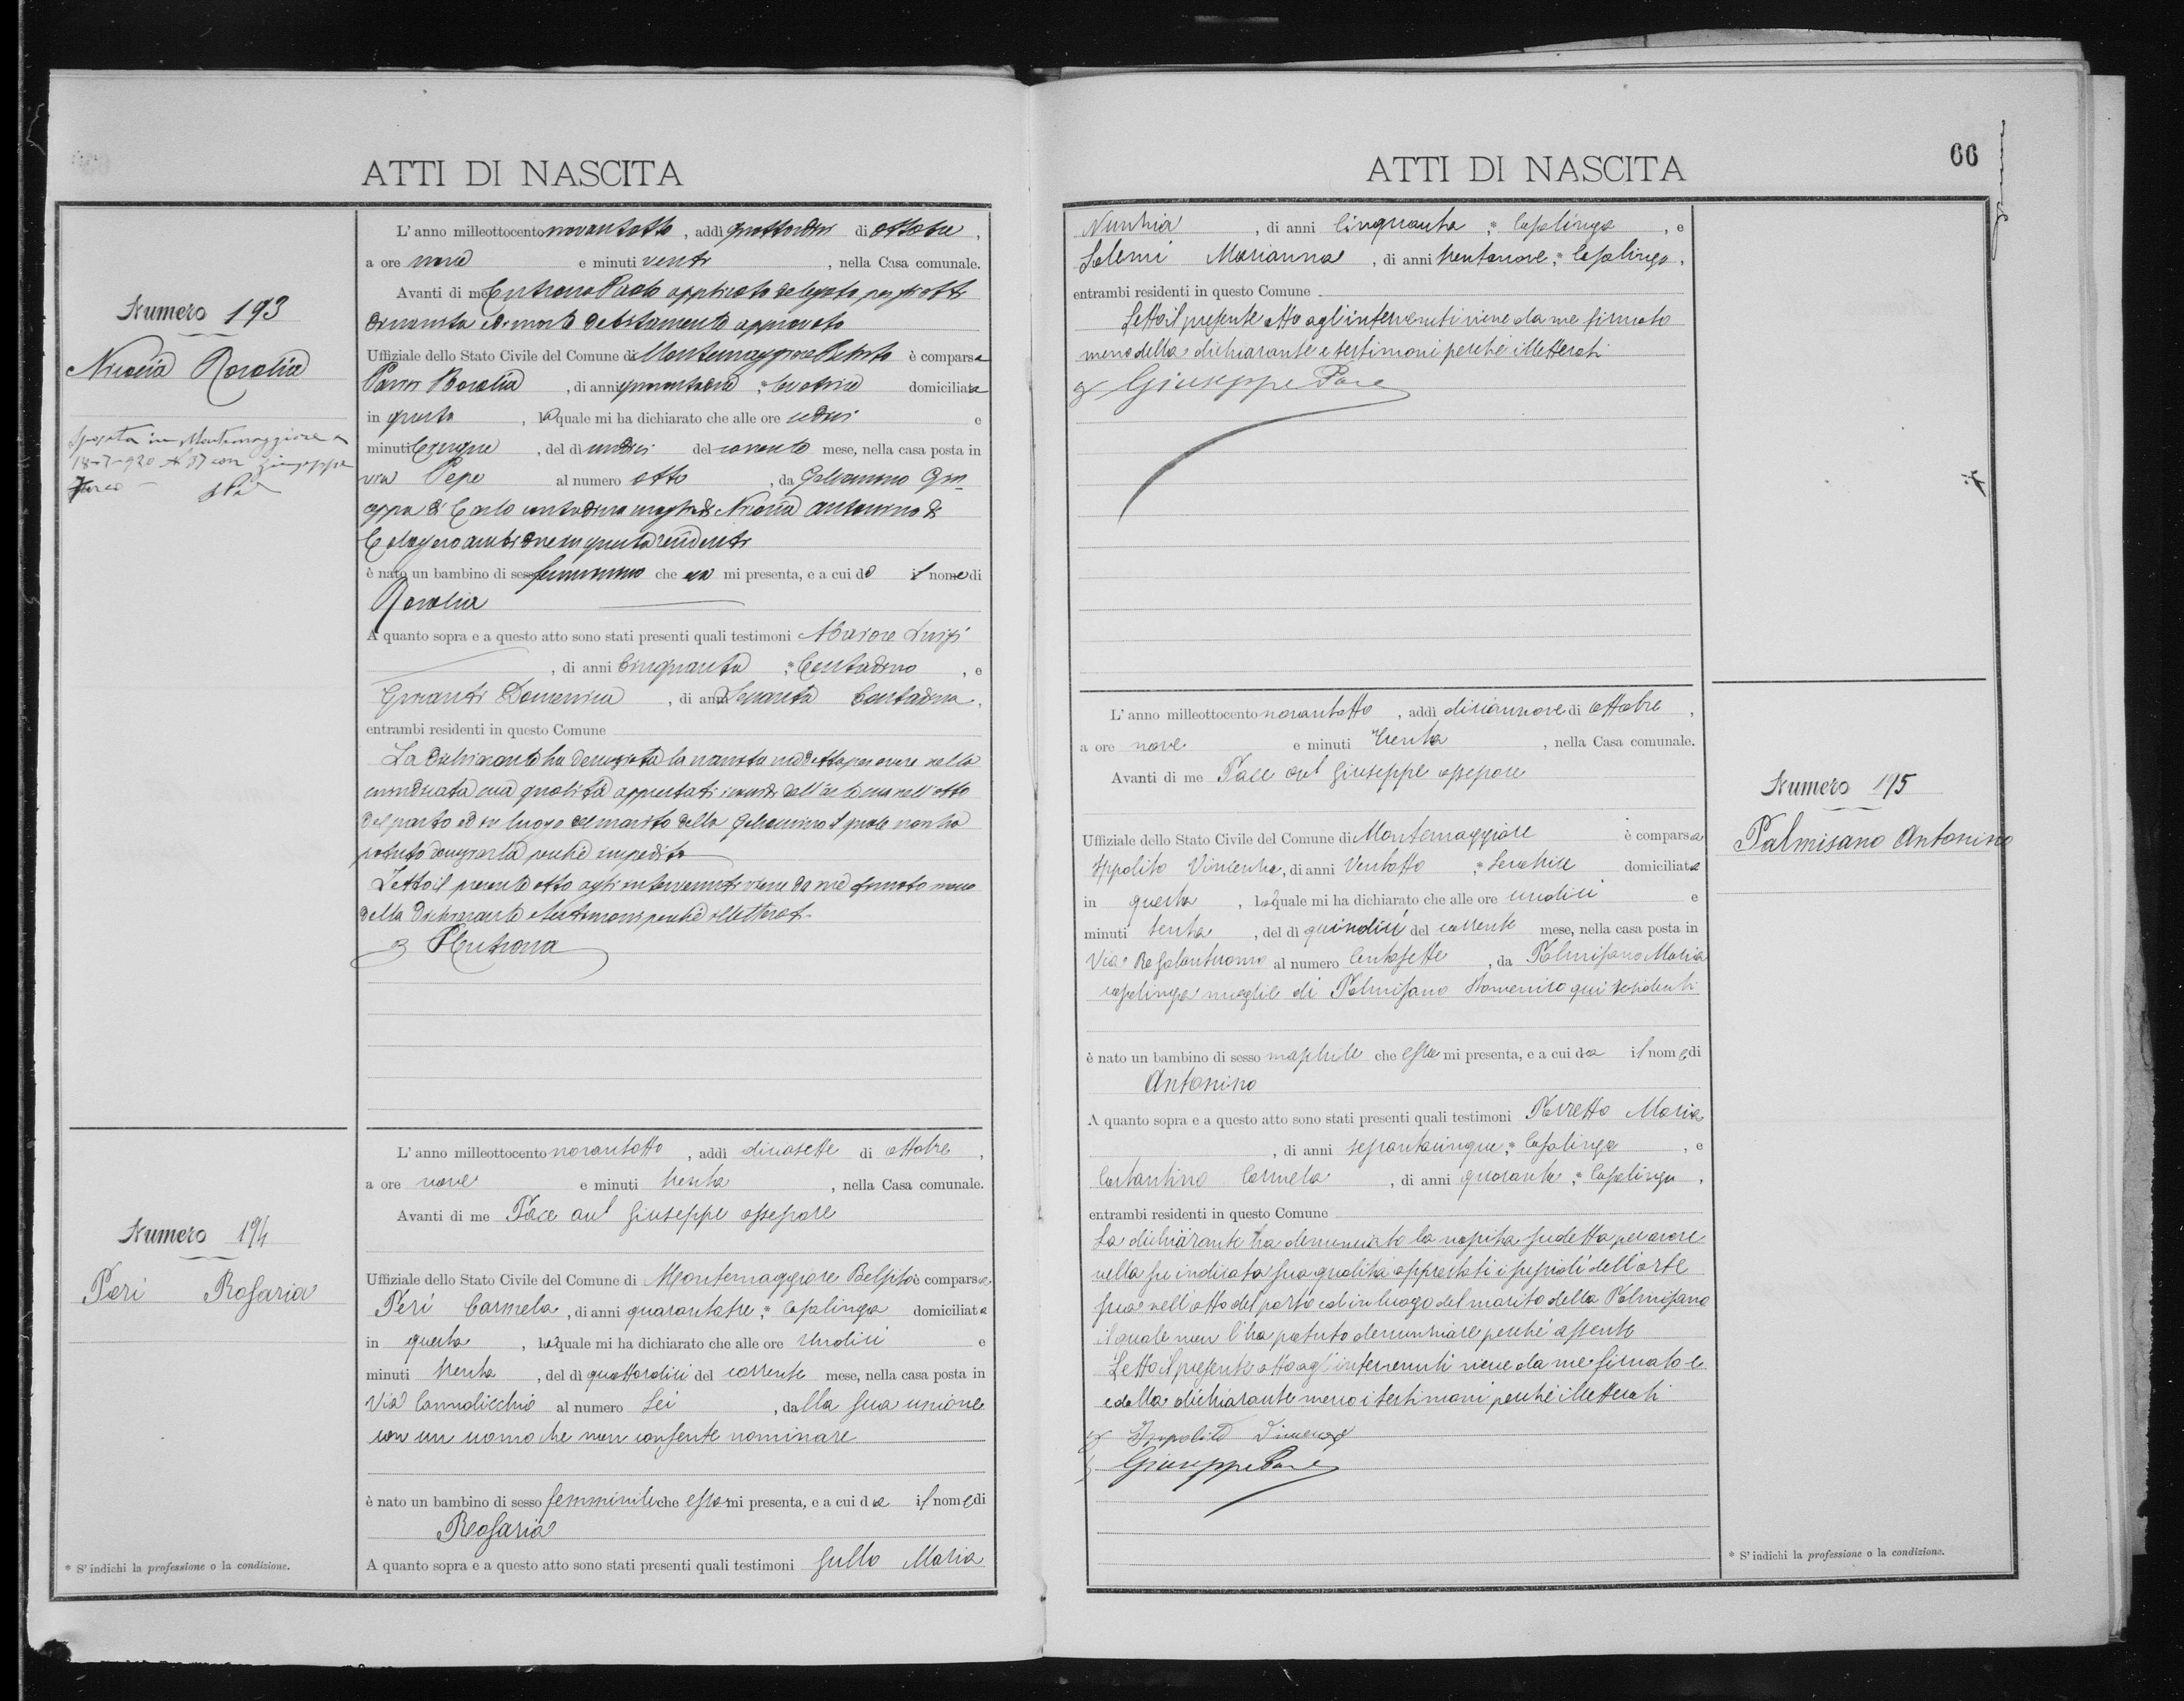 ATTI DI NASCITA
Numero 193
Nicosia Rosalia
Sposata in Montemaggiore a
18-7-920 N 37 con Giuseppe
L'anno millottocento novantotto, addì quattordici di ottobre,
a ore nove e minuti venti, nella Casa comunale.
Avanti di me Cutrona Paolo applicato delegato per gli atti
di nascita e di morte debitamente approvato
Uffiziale dello Stato Civile del Comune di Montemaggiore Belsito è comparsa
Rosalia, di anni, * levatrice domiciliata
in questa, la quale mi ha dichiarato che alle ore sedici e
minuti cinque, del dì undici del corrente mese, nella casa posta in
via Pepe al numero otto, da Galvanino Giu
seppa di Carlo contadina moglie di Nicosia Antonino di
Calogero ambidue in questa residenti
è nato un bambino di sesso femminino che essa mi presenta, e a cui dà il nome di
Rosalia
A quanto sopra e a questo atto sono stati presenti quali testimoni Luigi
, di anni cinquanta, * Contadino, e
Domenica, di anni sessanta Contadina,
entrambi residenti in questo Comune
La dichiarante ha denunziato la nascita suddetta per avere nella
suindicata sua qualità apprestati i sussidi dell'arte sua nell'atto
del parto ed in luogo del marito della Galvanino il quale non ha
potuto denunziarla perchè impedito
Letto il presente atto agli intervenuti viene da me firmato meno
della dichiarante e testimoni perchè illetterati.
P Cutrona
Numero 194
Peri Rosaria
L'anno millottocento novantotto, addì diciasette di ottobre,
a ore nove e minuti trenta, nella Casa comunale.
Avanti di me Pace avt Giuseppe assessore
Uffiziale dello Stato Civile del Comune di Montemaggiore Belsito è comparsa
Peri Carmela, di anni quarantatre, * Casalinga domiciliata
in questa, la quale mi ha dichiarato che alle ore undici e
minuti trenta, del dì quattordici del corrente mese, nella casa posta in
Via Cannolicchio al numero Sei, dalla sua unione
con un uomo che non consente nominare
è nato un bambino di sesso femminile che essa mi presenta, e a cui dà il nome di
Rosaria
A quanto sopra e a questo atto sono stati presenti quali testimoni Gullo Maria
* S'indichi la professione o la condizione.
ATTI DI NASCITA
66
Nunzia, di anni cinquanta, * Casalinga, e
Salemi Marianna, di anni trentanove, * Casalinga,
entrambi residenti in questo Comune
Letto il presente atto agl'intervenuti viene da me firmato
meno della dichiarante e testimoni perchè illetterati
Giuseppe Pace
L'anno millottocento novantotto, addì diciannove di ottobre,
a ore nove e minuti trenta, nella Casa comunale.
Avanti di me Pace avt Giuseppe assessore
Uffiziale dello Stato Civile del Comune di Montemaggiore è comparsa
Ippolito Vincenza, di anni ventotto, * levatrice domiciliata
in questa, la quale mi ha dichiarato che alle ore undici e
minuti trenta, del dì quindici del corrente mese, nella casa posta in
Via Re Galantuomo al numero centosette, da Palmisano Maria
casalinga moglie di Palmisano Domenico qui residenti
è nato un bambino di sesso maschile che essa mi presenta, e a cui dà il nome di
Antonino
A quanto sopra e a questo atto sono stati presenti quali testimoni Maria
, di anni sessantacinque, * Casalinga, e
Costantino Carmela, di anni quaranta, * Casalinga,
entrambi residenti in questo Comune
La dichiarante ha denunciato la nascita sudetta per avere
nella su indicata sua qualità apprestati i sussidi dell'arte
sua nell'atto del parto ed in luogo del marito della Palmisano
il quale non l'ha potuto denunziare perchè assente
Letto il presente atto agl'intervenuti viene da me firmato e
e dalla dichiarante meno i testimoni perchè illetterati
Ippolito Vincenza
Giuseppe Pace
Numero 195
Palmisano Antonino
* S'indichi la professione o la condizione.